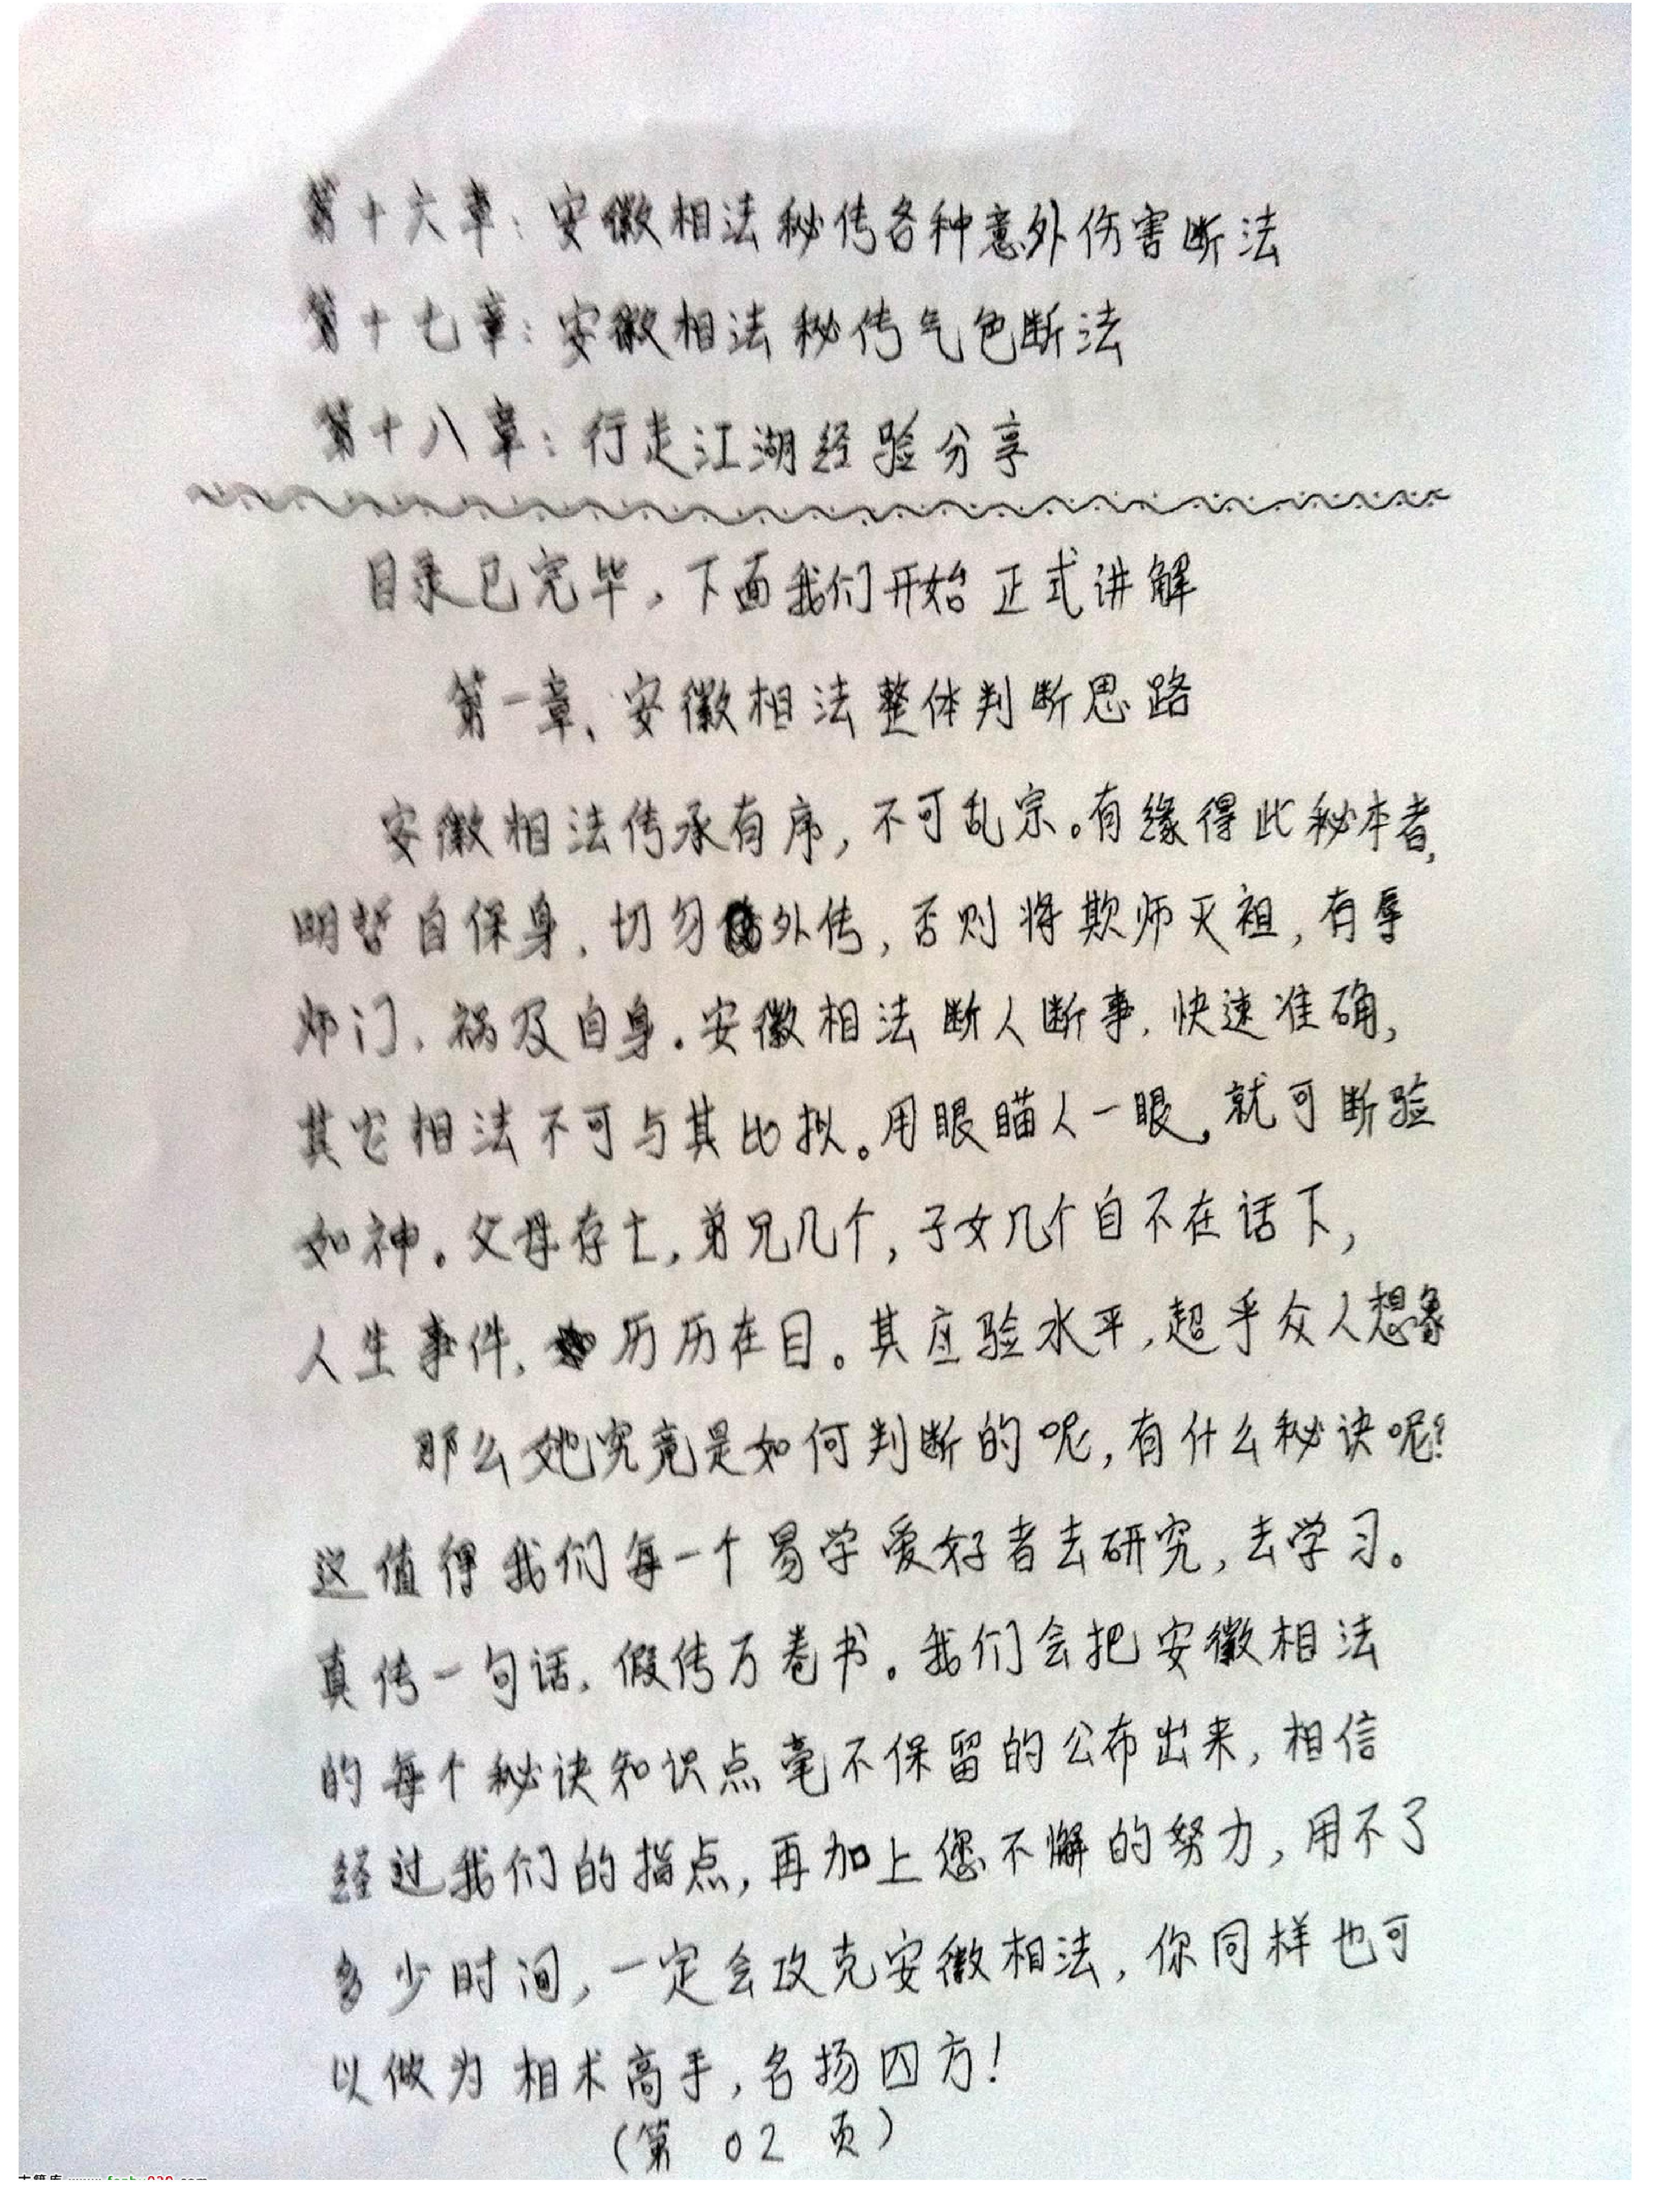 第十六章：安徽相法秘传各种意外伤害断法
第十七章：安徽相法秘传气色断法
第十八章：行走江湖经验分享
目录已完毕，下面我们开始正式讲解
第一章、安徽相法整体判断思路
安徽相法传承有序，不可乱宗。有缘得此秘本者，
明哲自保身，切勿外传，否则将欺师灭祖，有辱
师门，祸及自身。安徽相法断人断事，快速准确，
其它相法不可与其比拟。用眼瞄人一眼，就可断验
如神。父母存亡，弟兄几个，子女几个自不在话下，
人生事件，历历在目。其应验水平，超乎众人想象
那么她究竟是如何判断的呢，有什么秘诀呢？
这值得我们每一个易学爱好者去研究，去学习。
真传一句话，假传万卷书。我们会把安徽相法
的每个秘诀知识点毫不保留的公布出来，相信
经过我们的指点，再加上您不懈的努力，用不了
多少时间，一定会攻克安徽相法，你同样也可
以做为相术高手，名扬四方！
（第 02 页）